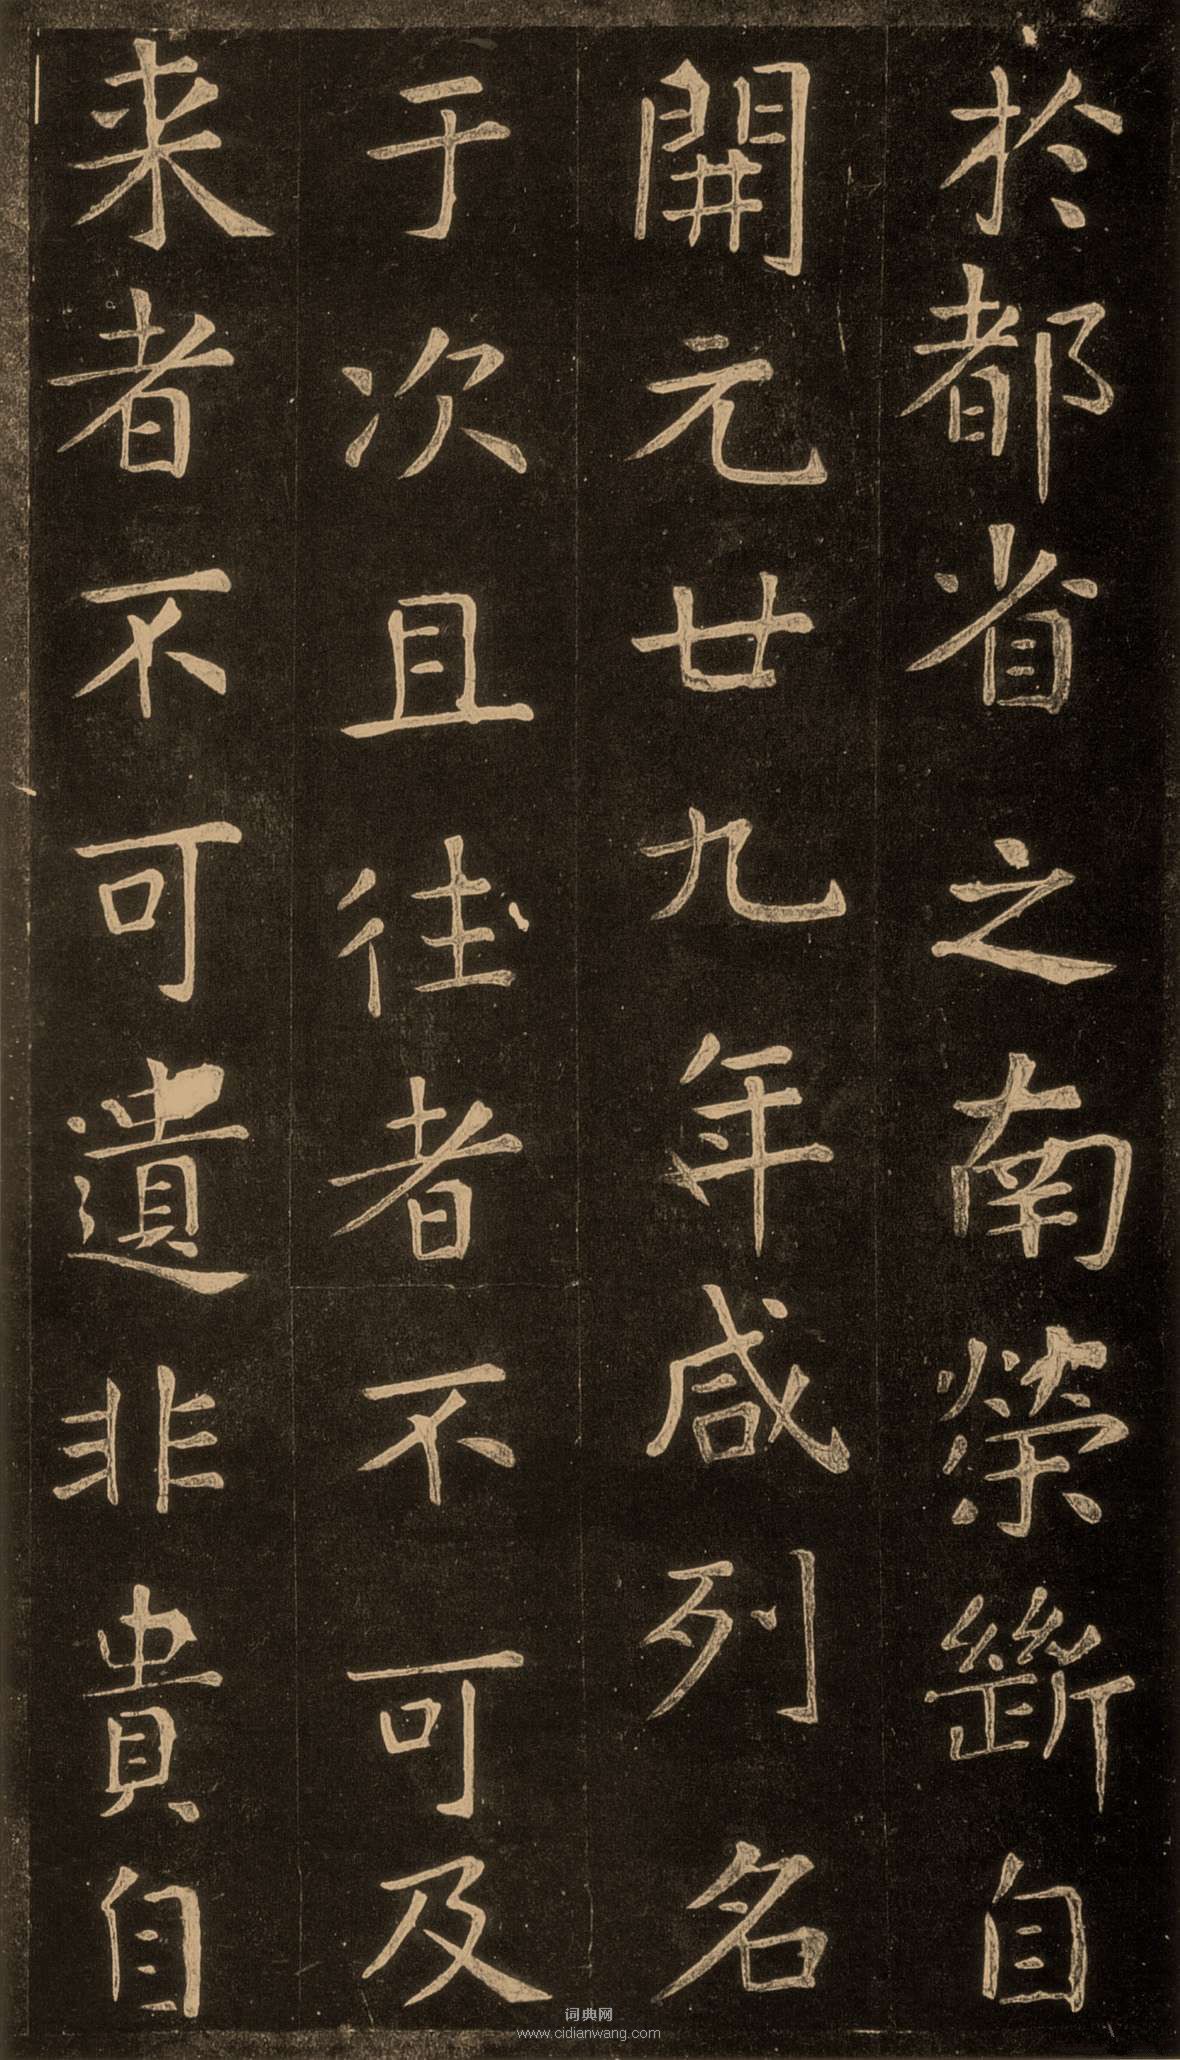 於都省之南榮斷自
開元廿九年咸列名
于次且往者不可及
来者不可遺非貴自
词典网
www.cidianwang.com